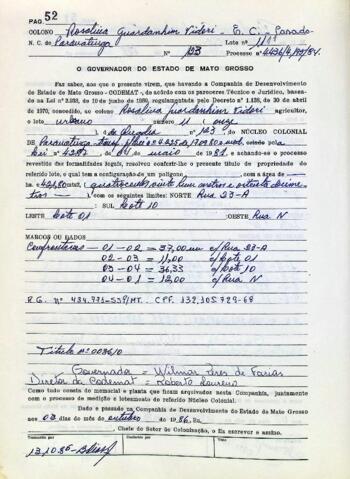 PAG. 52
COLONO Rosalina Guardanhim Vidori - E. C. - Casado
N. C. de Paranatinga Lote nº 11
Nº 123 Processo nº 4436/4.709/84.
O GOVERNADOR DO ESTADO DE MATO GROSSO
Faz saber, aos que o presente virem, que havendo a Companhia de Desenvolvimento
do Estado de Mato Grosso - CODEMAT -, de acordo com os pareceres Técnico e Jurídico, basea-
da na Lei nº 3.933, de 10 de junho de 1980, regulamentada pelo Decreto nº 1.138, de 30 de abril
de 1970, concedido, ao colono Rosalina Guardanhim Vidori agricultor,
o lote urbano número 11 (onze
) da Quadra nº 123 do NÚCLEO COLONIAL
DE Paranatinga
Lei nº 4287 de 04 de maio de 1981, e achando-se o processo
revestido das formalidades legais, resolveu conferir-lhe o presente título de propriedade do
referido lote, o qual tem a configuração de um polígono com a área de
ha. e 421,80 mts², (quatrocentos vinte hum metros e oitenta decime-
tros —) com os seguintes limites: NORTE Rua 23-A
SUL Lote 10
LESTE Lote 01 OESTE Rua N
MARCOS OU DADOS
Confrontações - 01 - 02 = 37,00 m c/Rua 23-A
02 - 03 = 11,00 c/Lote 01
03 - 04 = 36,33 c/Lote 10
04 - 01 = 12,00 c/Rua N
R.G. nº 434.775-SSP/MT. CPF. 132.105.729-68
Título nº 003610
Governador = Wilmar Peres de Farias
Diretor da Codemat = Roberto Loureiro
Como tudo consta do memorial e planta que ficam arquivados nesta Companhia, juntamente
com o processo de medição e loteamento do referido Núcleo Colonial.
Dado e passado na Companhia de Desenvolvimento do Estado de Mato Grosso
aos 03 dias do mês de outubro de 1986. Eu,
Chefe do Setor de Colonização, o Eu escrever e assino.
13.10.86